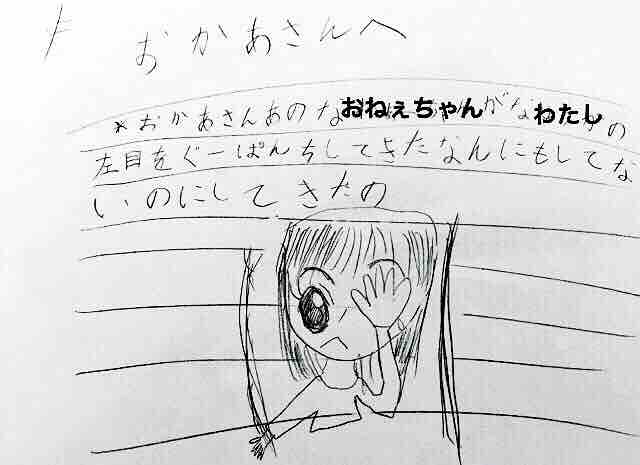 おかあさんへ
*おかあさんあのなおねぇちゃんがなわたしの
左目をぐーぱんちしてきたなんにもしてな
いのにしてきたの